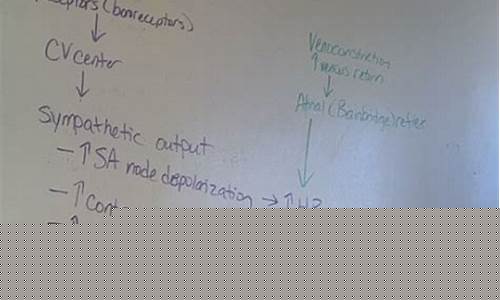 (baroreceptors)
CV center
Sympathetic output
- ↑ SA node depolarization → ↑
- ↑
- ↑
Venoconstriction
↑ venous return
Atrial (Bainbridge) reflex